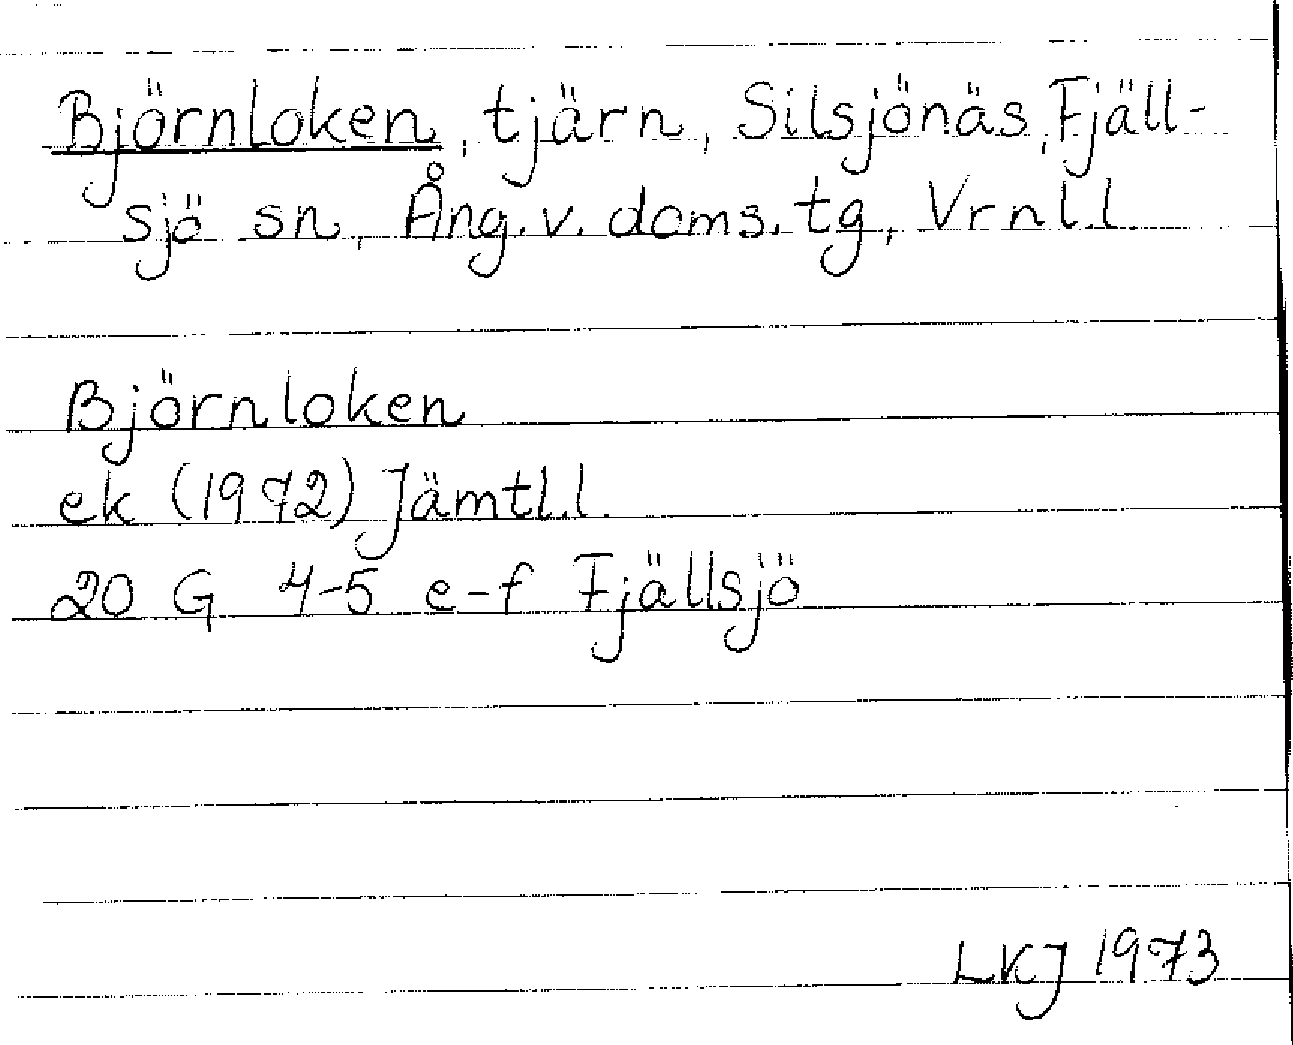 Björnloken, tjärn, Silsjönäs, Fjäll-
sjö sn, Ång. v. doms. tg, Vrnl.l.
Björnloken
ek (1972) Jämtl.l.
20 G 4-5 e-f Fjällsjö
LKJ 1973